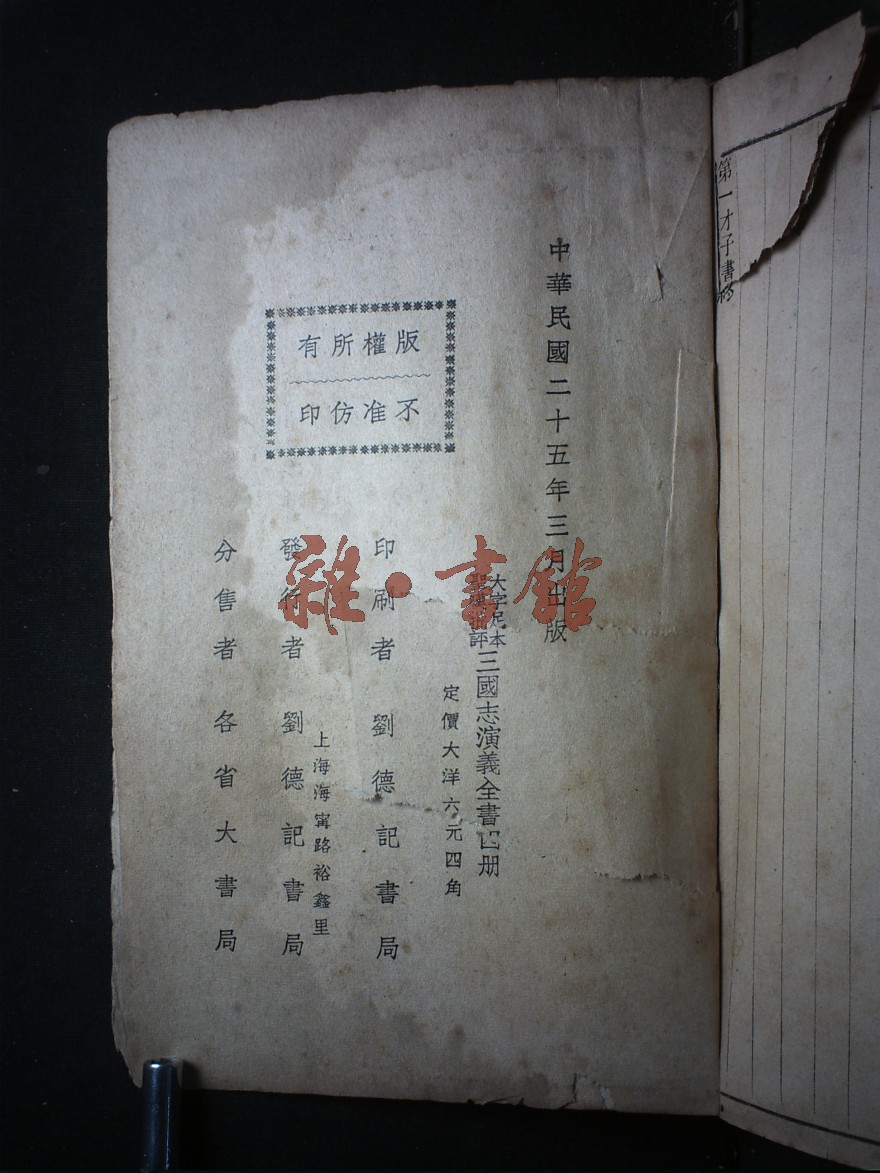 第一才子書
中華民國二十五年三月出版
大字足本
批評
三國志演義全書四册
定價大洋六元四角
版權所有
不准仿印
印刷者 劉德記書局
上海海甯路裕鑫里
發行者 劉德記書局
分售者 各省大書局
雜·書館